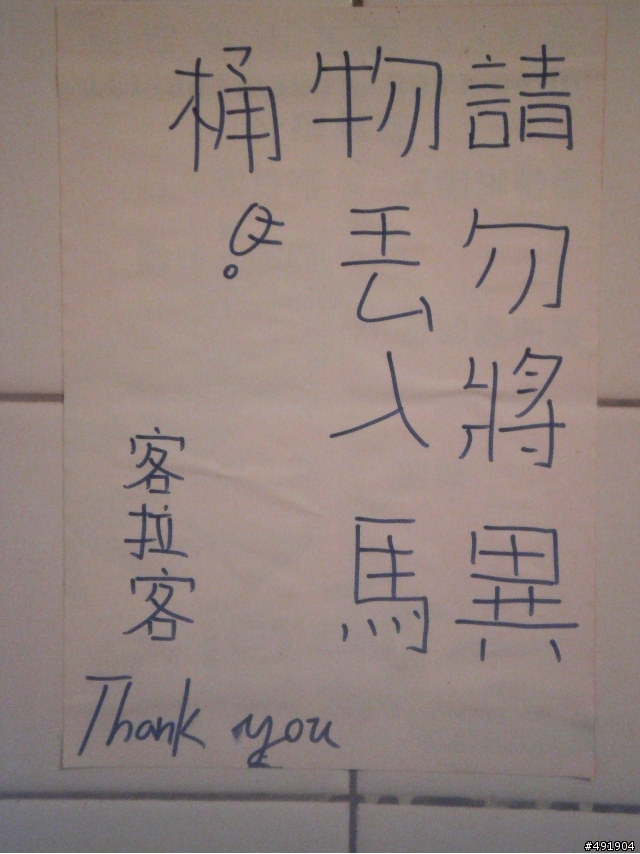 請勿將異
物丟入馬
桶。
客拉客
Thank you
#491904